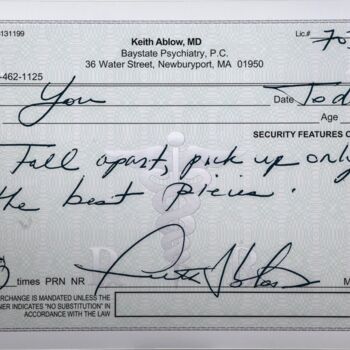 131199
Keith Ablow, MD
Lic.# 703
Baystate Psychiatry, P.C.
36 Water Street, Newburyport, MA 01950
-462-1125
You
Date Tod
Age
SECURITY FEATURES O
Fall apart, pick up only
the best pieces.
times PRN NR
Keith Ablow
M
ERCHANGE IS MANDATED UNLESS THE
NER INDICATES "NO SUBSTITUTION" IN
ACCORDANCE WITH THE LAW